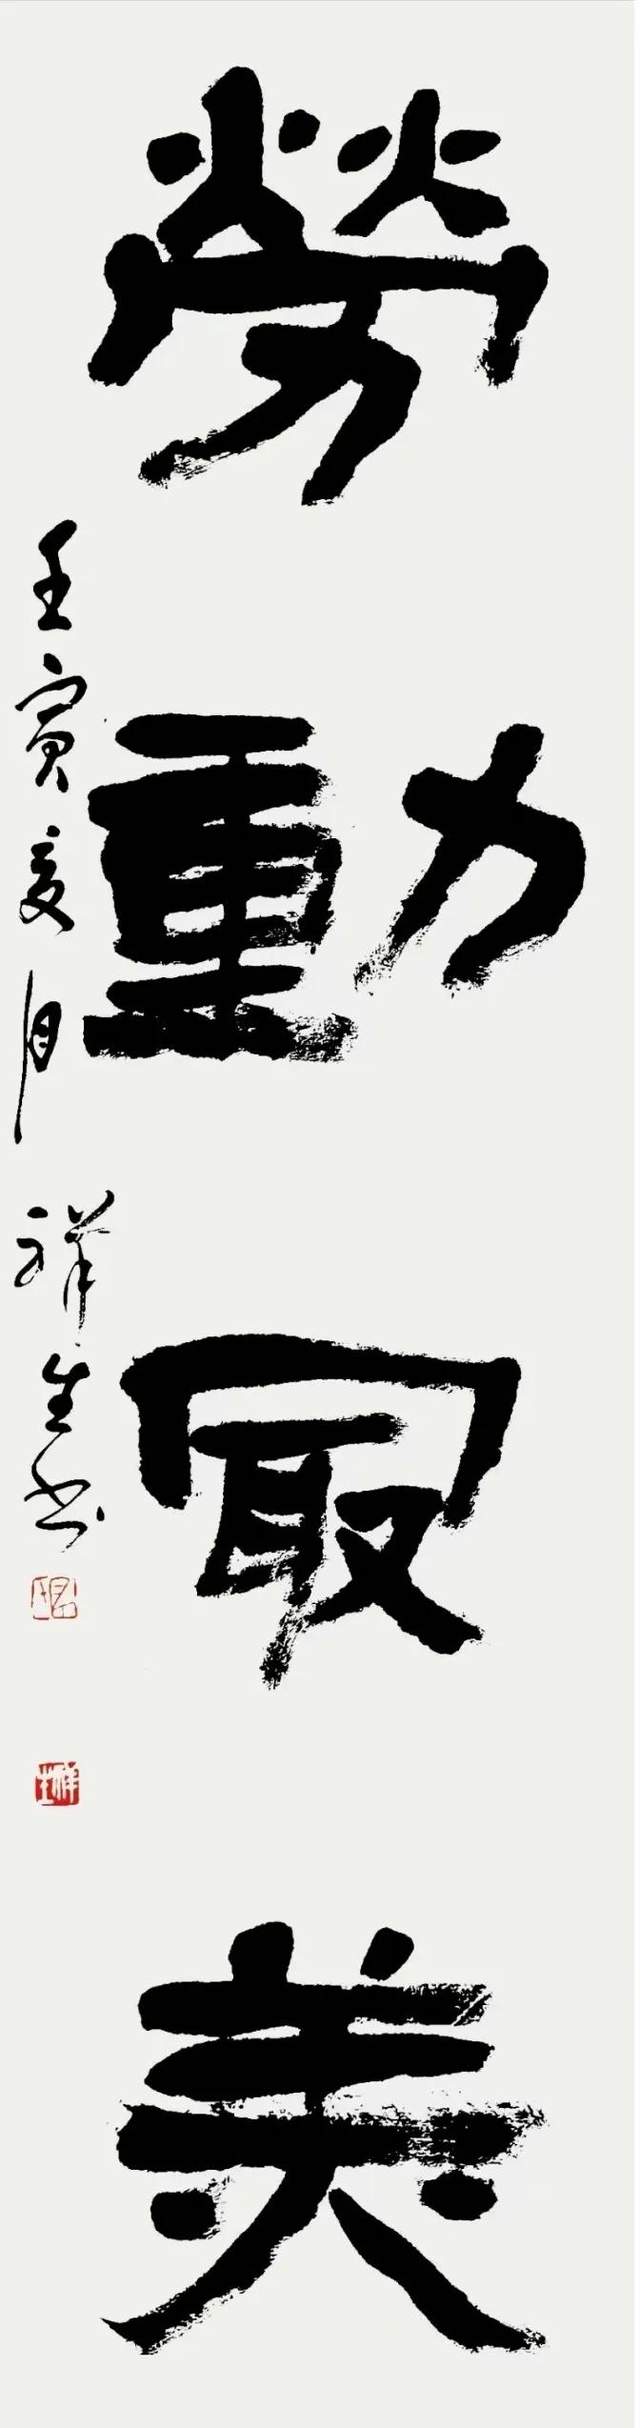 勞動冣美
壬寅夏月祥生书